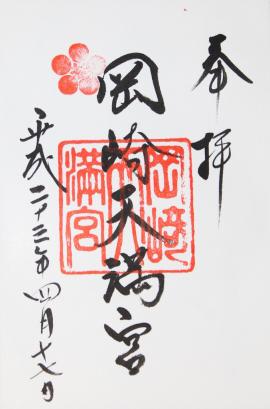 奉拝
岡崎天満宮
平成二十三年四月十七日
岡崎
天
満宮